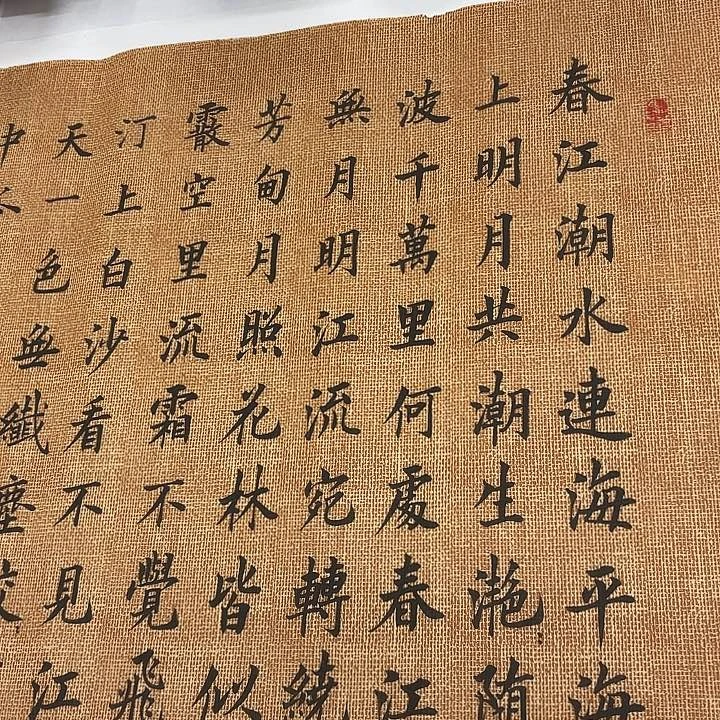 春江潮水連海平海
上明月共潮生滟々随
波千萬里何處春江
無月明江流宛轉繞
芳甸月照花林皆似
霰空里流霜不覺飛
汀上白沙看不見江
天一色無纖塵皎
中